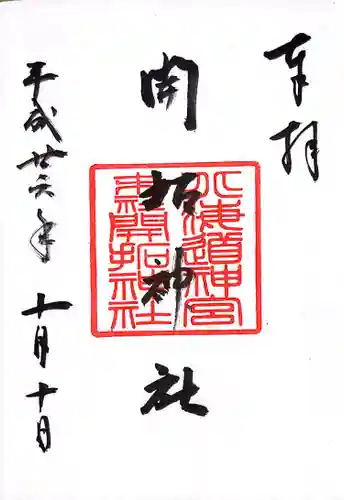 奉拝
開拓神社
北海道神宮
末開拓神社
平成廿六年十月十日